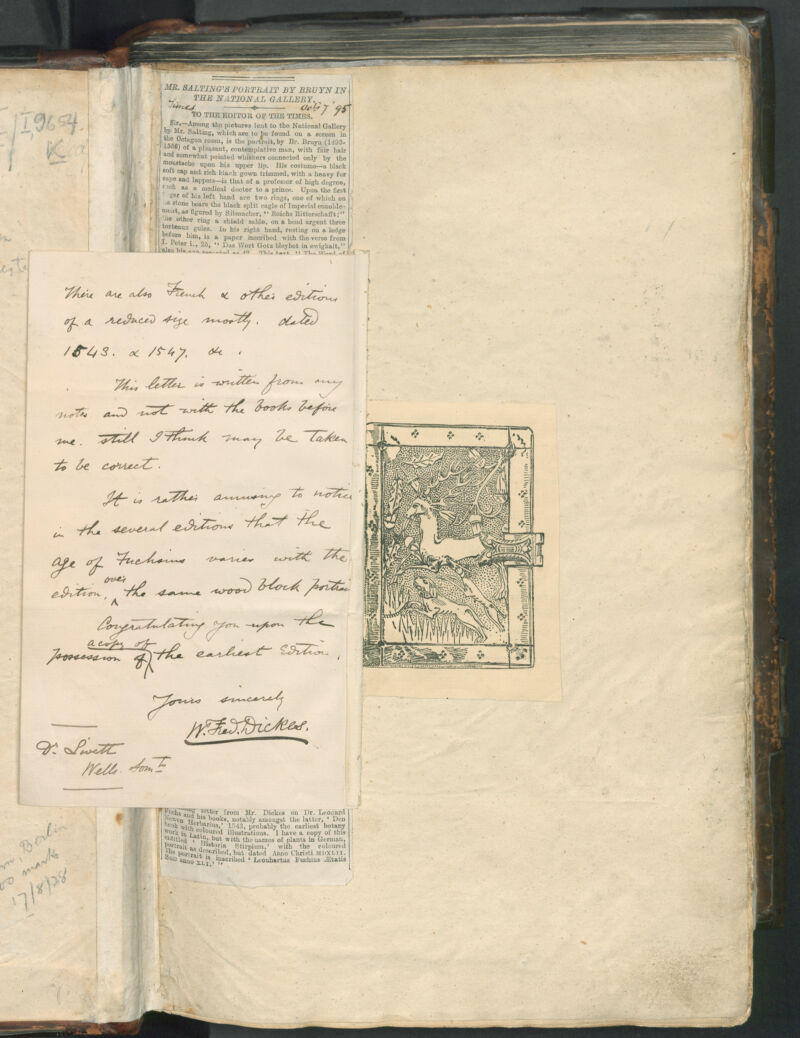 MR. SALTING'S PORTRAIT BY BRUYN IN
THE NATIONAL GALLERY.
Times Oct 7 '95
TO THE EDITOR OF THE TIMES.
Sir,—Among the pictures lent to the National Gallery
by Mr. Salting, which are to be found on a screen in
the Octagon room, is the portrait, by Dr. Bruyn (1493-
1556) of a pleasant, contemplative man, with fair hair
and somewhat pointed whiskers connected only by the
moustache upon his upper lip. His costume—a black
soft cap and rich black gown trimmed, with a heavy fur
cape and lappets—is that of a professor of high degree,
such as a medical doctor to a prince. Upon the first
ger of his left hand are two rings, one of which on
stone bears the black split eagle of Imperial ennoble-
ment, as figured by Sibmacher, "Reichs Ritterschafft;"
the other ring a shield sable, on a bend argent three
torteaux gules. In his right hand, resting on a ledge
before him, is a paper inscribed with the verse from
I. Peter i., 25, "Das Wort Gotz bleybet in ewigkait,"
There are also French & other editions
of a reduced size mostly. dated
1543. & 1547. &c.
This letter is written from my
notes and not with the books before
me. still I think may be taken
to be correct.
It is rather amusing to notice
in the several editions that the
age of Fuchsius varies with the
edition, over the same wood block portrai
Congratulating you upon the
possession of a copy of the earliest Edition.
Yours sincerely
W. Fred. Dickes.
Dr. Livett
Wells. Somt
letter from Mr. Dickes on Dr. Leonard
Fuchs and his books, notably amongst the latter, 'Den
Nieuwen Herbarius,' 1543, probably the earliest botany
book with coloured illustrations. I have a copy of this
work in Latin, but with the names of plants in German,
entitled 'Historia Stirpium,' with the coloured
portrait as described, but dated Anno Christi MDXLII.
His portrait is inscribed 'Leonhartus Fuchsius Ætatis
Suæ anno XLI.'"
I 9654
Berlin
00 marks
17/8/28